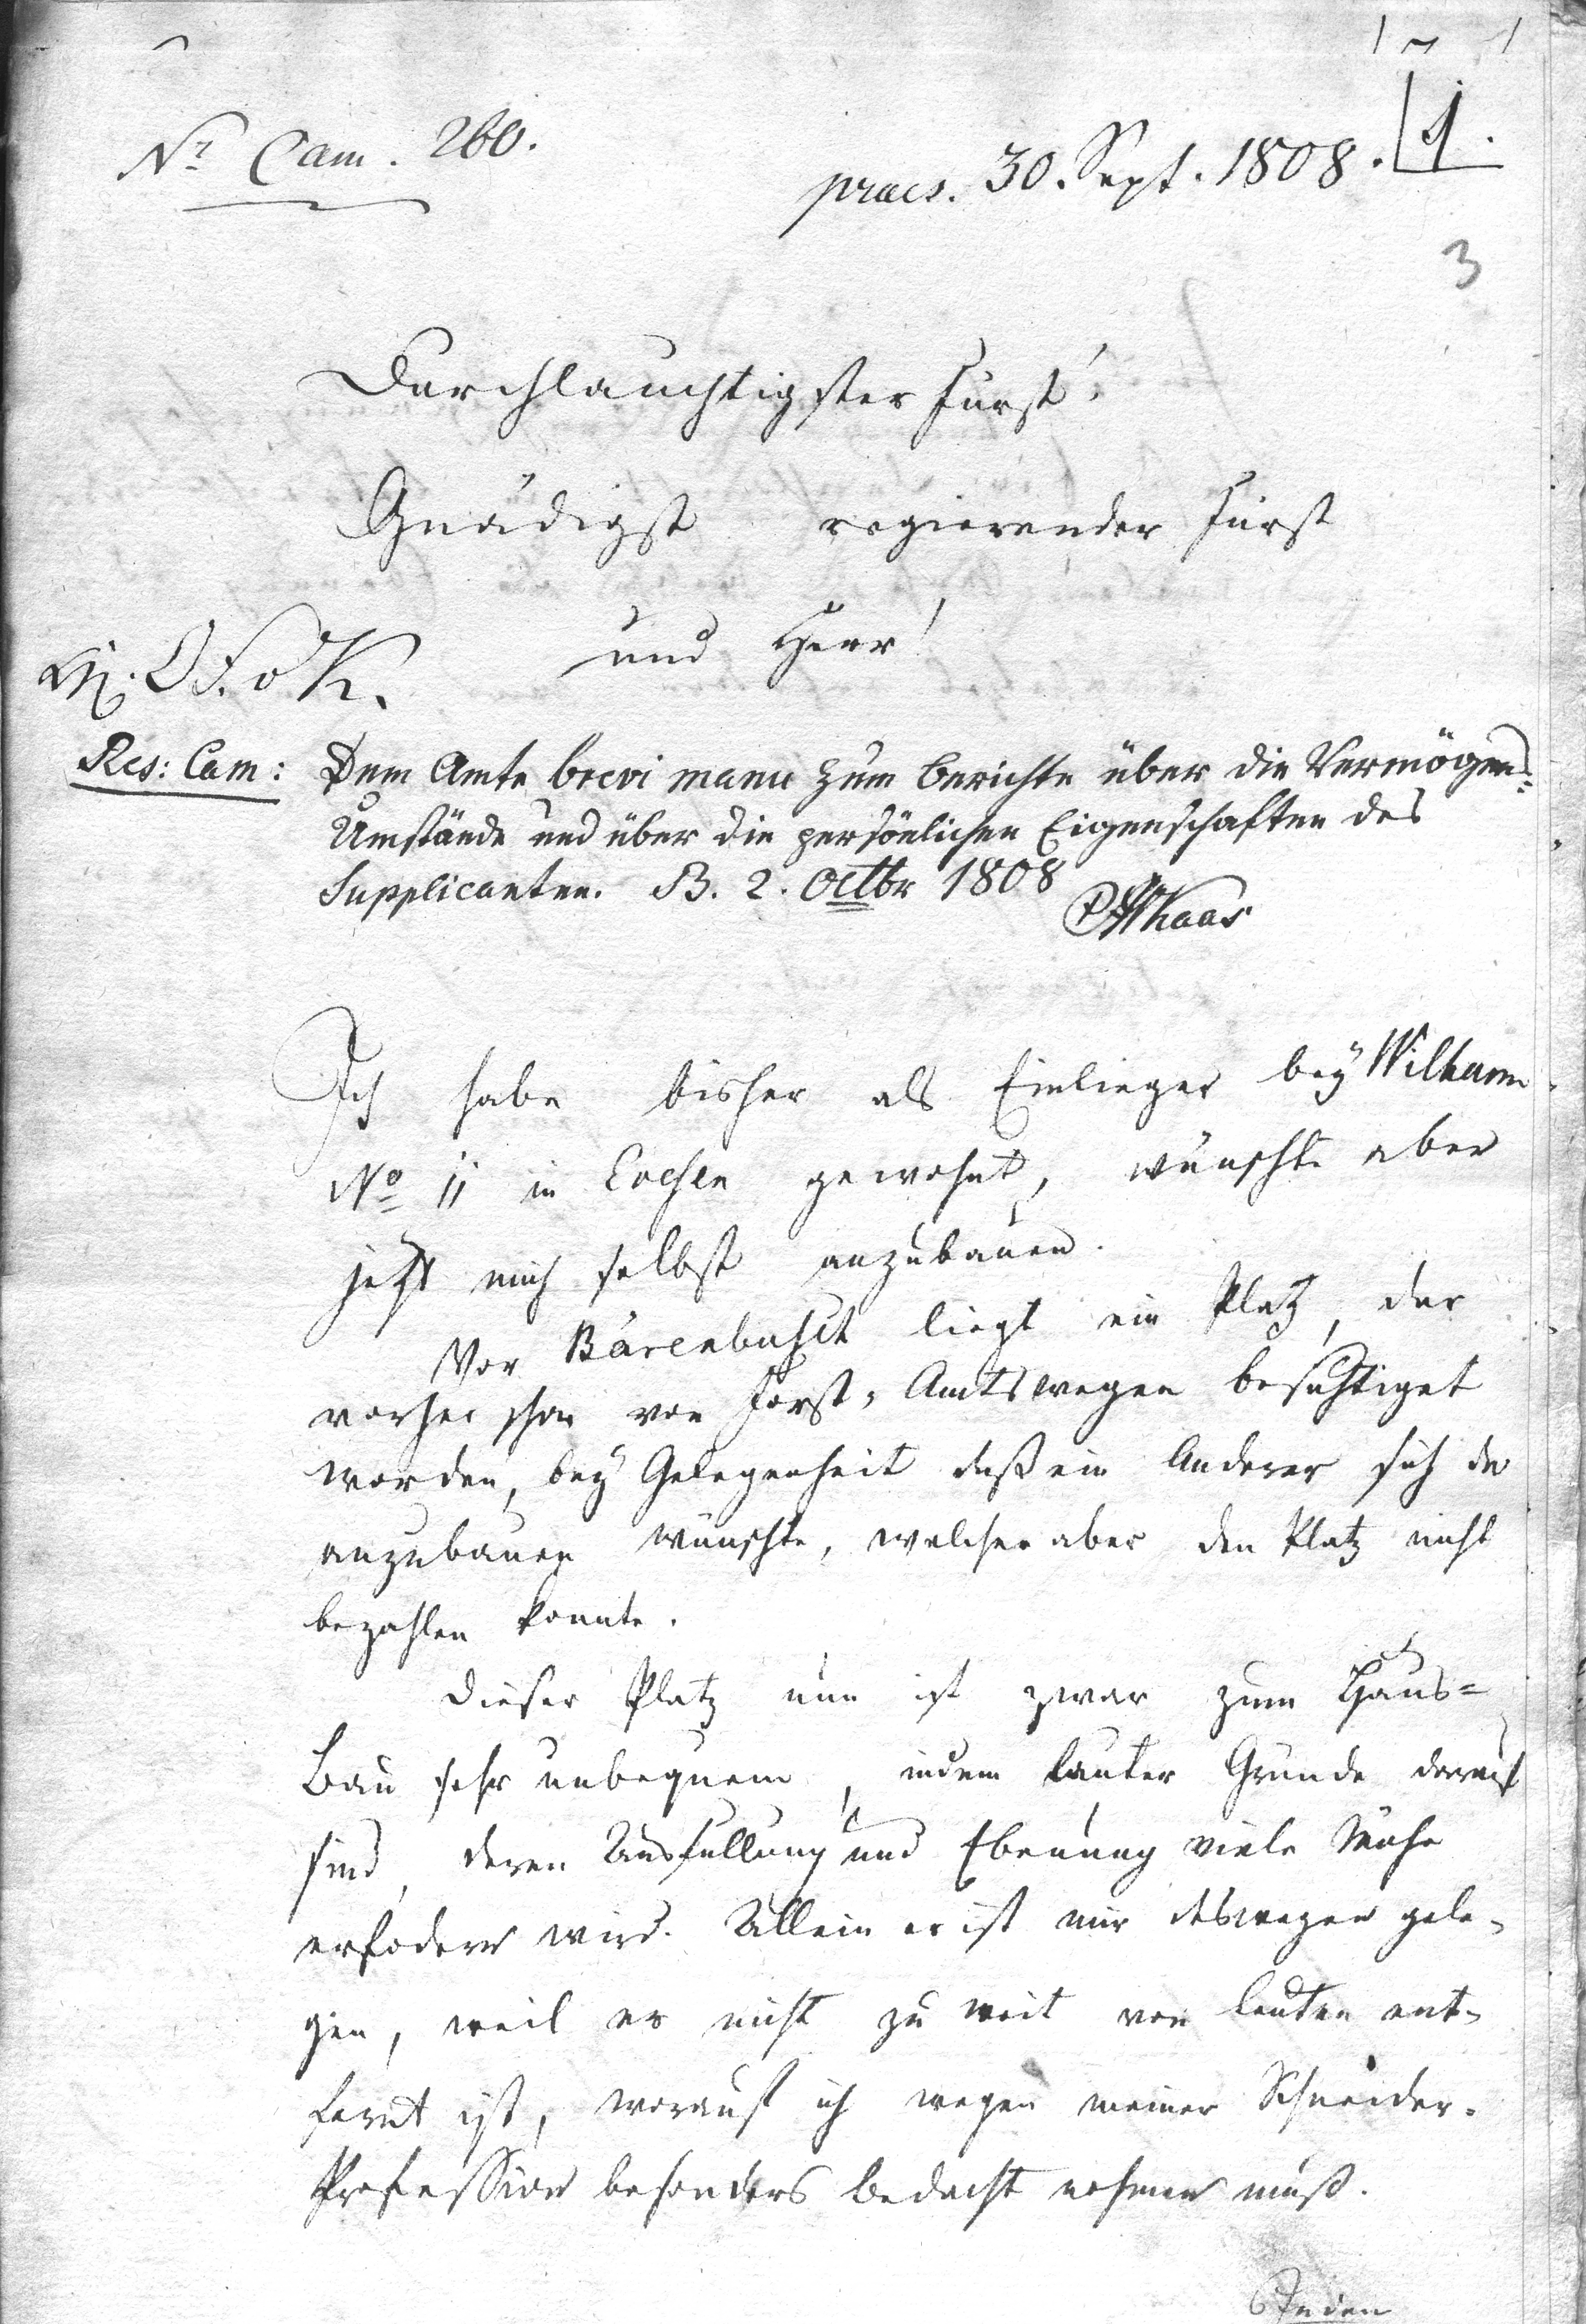 Nr. Cam. 260.
praes. 30. Sept. 1808.
1.
3
Durchlauchtigster Fürst!
Gnädigst regierender Fürst
und Herr!
Res: Cam: Dem Amte brevi manu zum Berichte über die Vermögens=
Umstände und über die persönlichen Eigenschaften des
Supplicanten. B. 2. Octbr 1808
Ich habe bisher als Einlieger bey Wilharm
No 11 in Evesen gewohnt, wünschte aber
jetzt mich selbst anzubauen.
Vor Bärenbusch liegt ein Platz, der
vorher schon von Forst-Amtswegen besichtiget
worden, bey Gelegenheit daß ein Anderer sich da
anzubauen wünschte, welcher aber den Platz nicht
bezahlen konnte.
Dieser Platz nun ist zwar zum Haus=
Bau sehr unbequem, indem lauter Gründe darauf
sind, deren Ausfüllung und Ebenung viele Mühe
erfodern wird. Allein er ist mir deswegen gele-
gen, weil er nicht zu weit von Leuten ent-
fernt ist, worauf ich wegen meiner Schneider-
Profession besonders Bedacht nehmen muß.